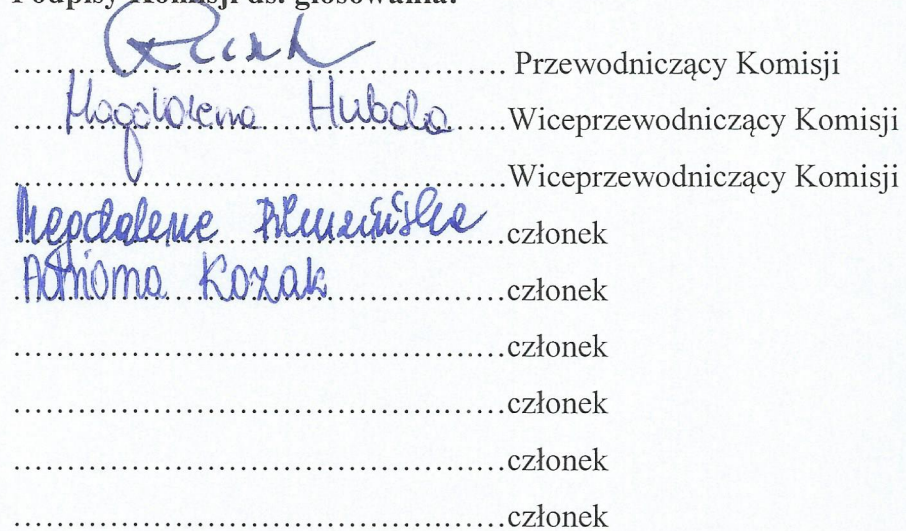 Podpisy Komisji ds. głosowania:
................................................ Przewodniczący Komisji
Magdalena Hubala Wiceprzewodniczący Komisji
................................................Wiceprzewodniczący Komisji
Magdalena członek
Adrianna Kozak członek
................................................członek
................................................członek
................................................członek
................................................członek